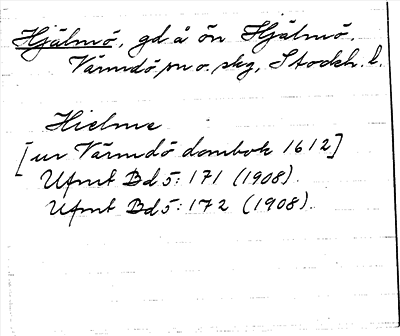 Hjälmö, gd å ön Hjälmö.
Värmdö sn o. skg, Stockh. l.
Hielme
[ur Värmdö dombok 1612]
Ufmt Bd 5: 171 (1908).
Ufmt Bd 5: 172 (1908).